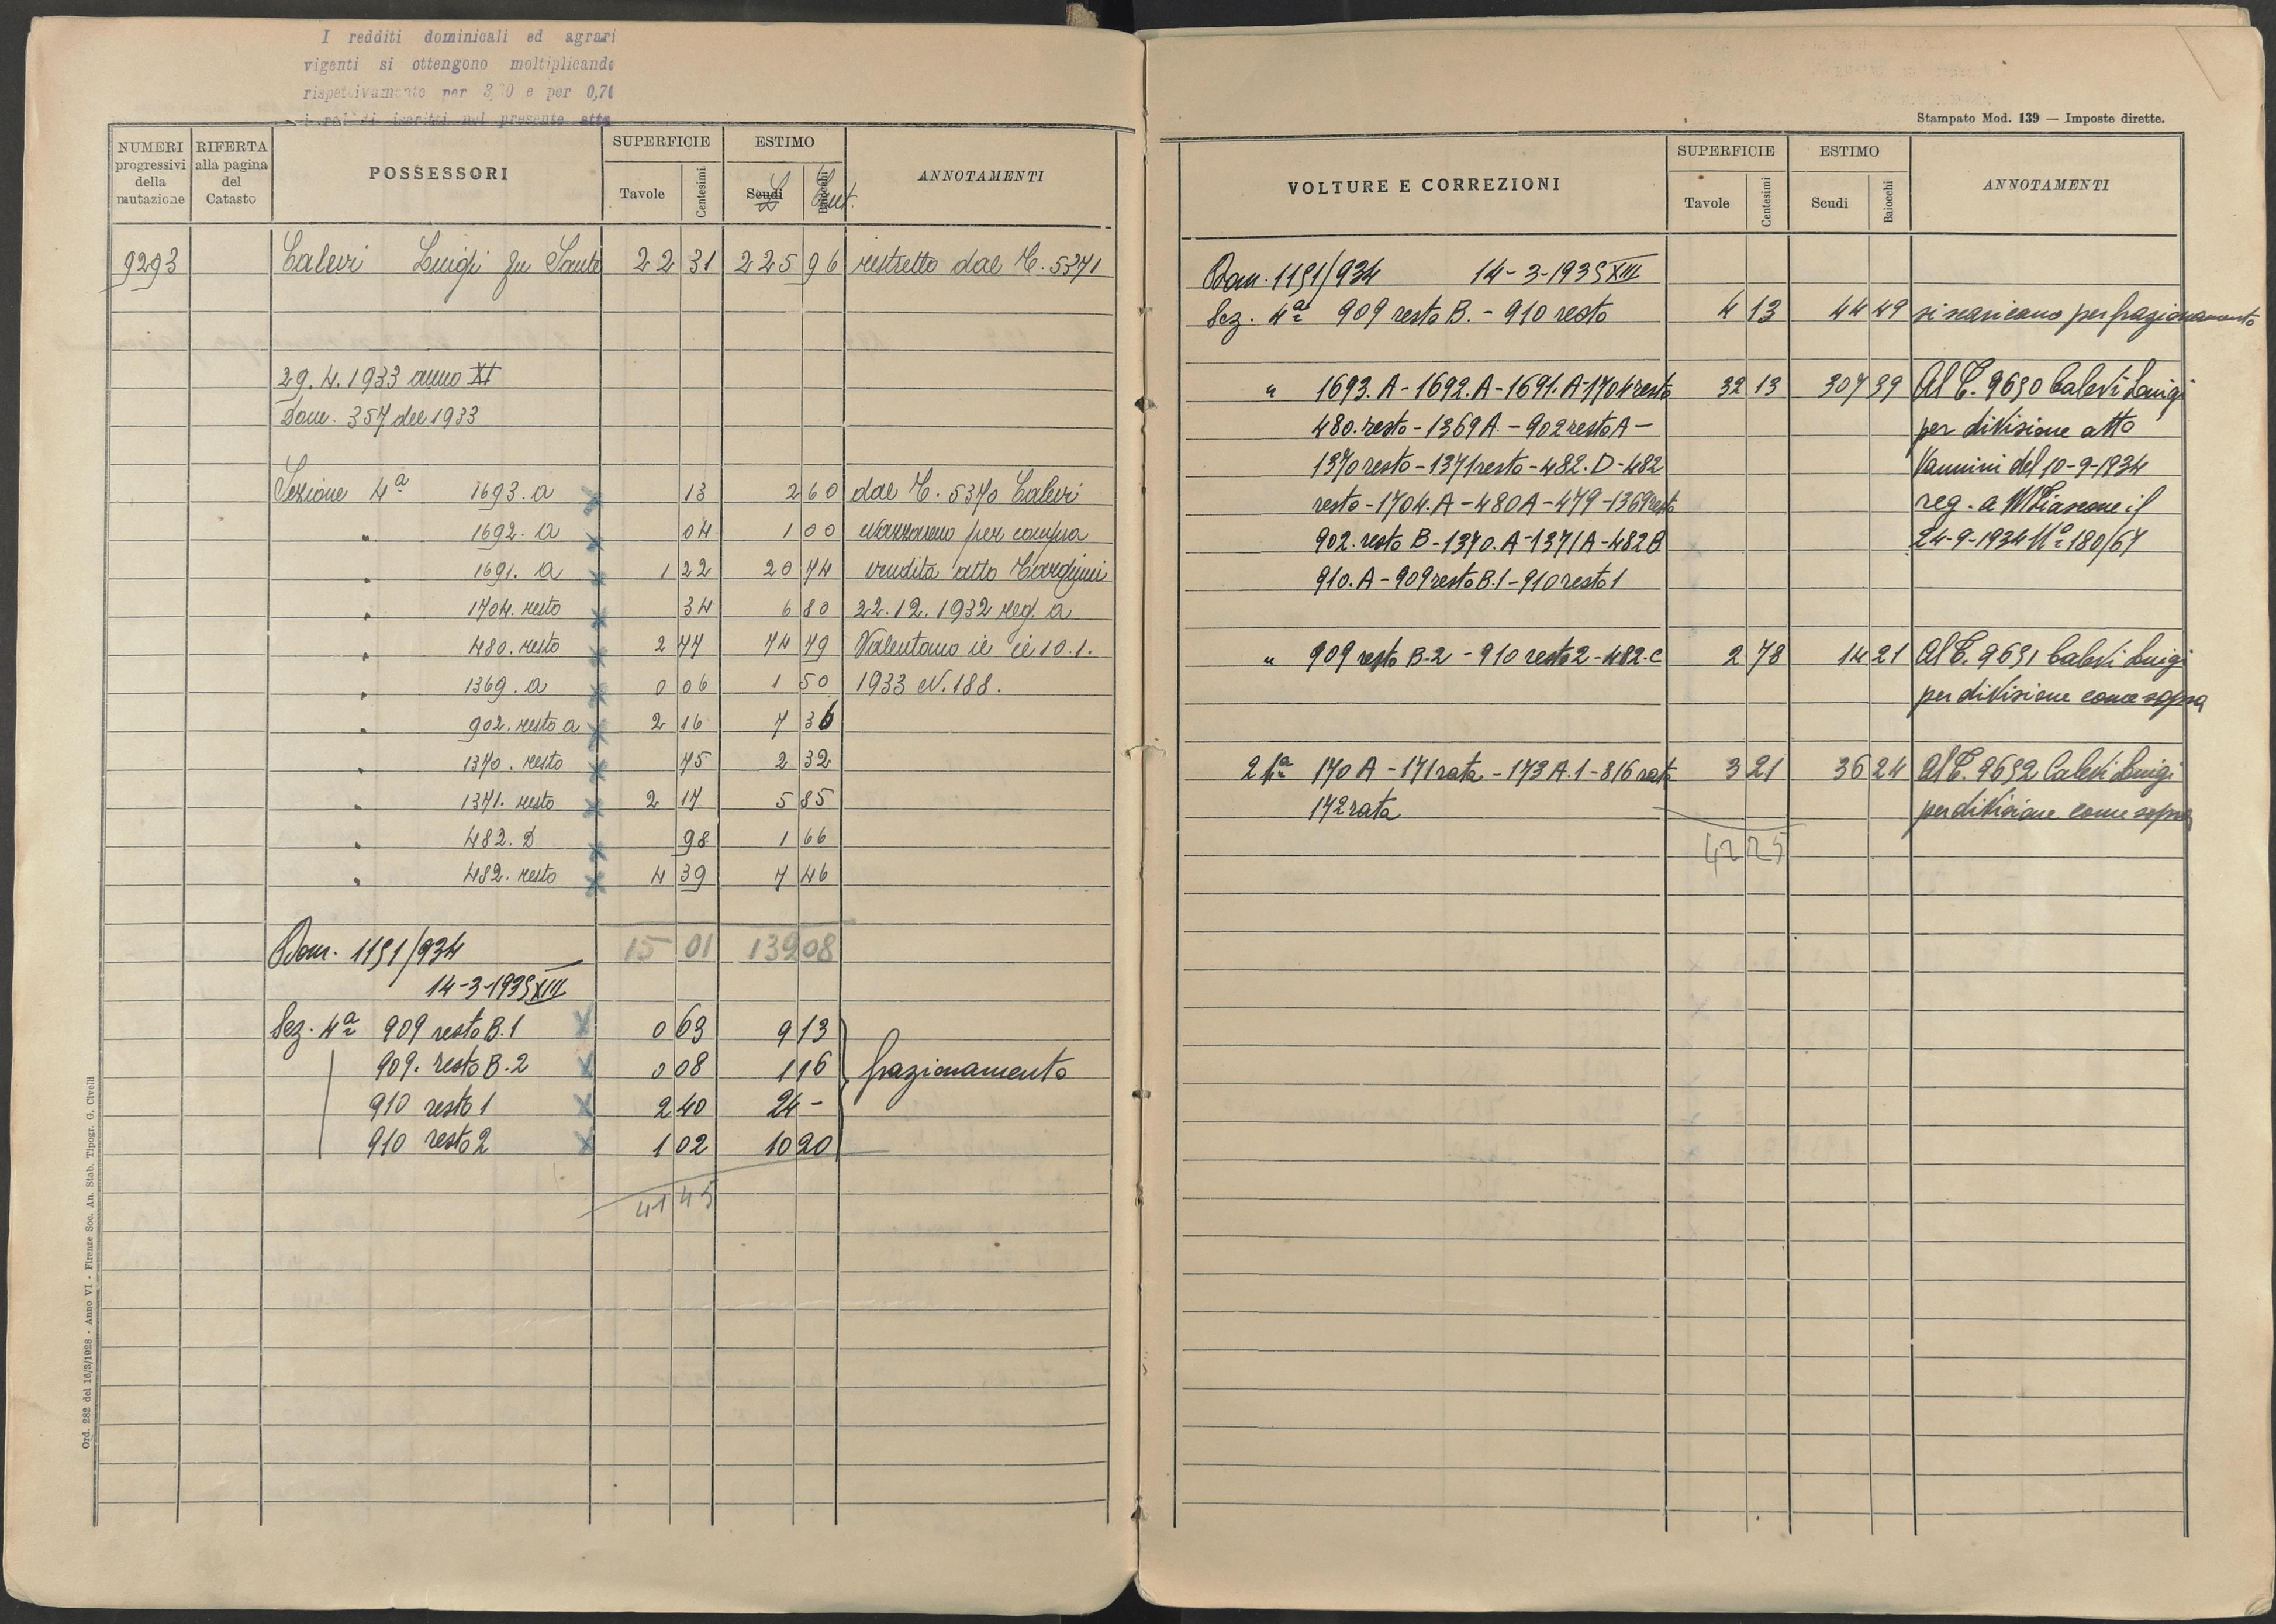 I redditi dominicali ed agrari
vigenti si ottengono moltiplicando
rispettivamente per 3,20 e per 0,70
i redditi iscritti nel presente atto
NUMERI progressivi della mutazione
RIFERTA alla pagina del Catasto
POSSESSORI
SUPERFICIE
Tavole Centesimi
ESTIMO
Scudi Baiocchi
L Cent.
ANNOTAMENTI
9293 Calevi Luigi fu Sante 22 31 225 96 ristretto dal C. 5371
29.4.1933 anno XI
Dom. 357 del 1933
Sezione 4ª 1693.a 13 2 60 dal C. 5370 Calevi
" 1692.a 04 1 00 Nazzareno per compra
" 1691.a 1 22 20 74 vendita atto
" 1704. resto 34 6 80 22.12.1932 reg. a
" 480. resto 2 77 74 79 Valentano il 10.1.
" 1369.a 0 06 1 50 1933 N. 188.
" 902. resto a 2 16 7 36
" 1370. resto 75 2 32
" 1371. resto 2 17 5 85
" 482. D 98 1 66
" 482. resto 4 39 7 46
15 01 139 08
Dom. 1151/934
14-3-1935 XIII
Sez. 4ª 909 resto B.1 0 63 9 13
909. resto B.2 0 08 1 16 frazionamento
910 resto 1 2 40 24 -
910 resto 2 1 02 10 20
41 45
Ord. 282 del 16/3/1928 - Anno VI - Firenze Soc. An. Stab. Tipogr. G. Civelli
Stampato Mod. 139 — Imposte dirette.
VOLTURE E CORREZIONI
SUPERFICIE
Tavole Centesimi
ESTIMO
Scudi Baiocchi
ANNOTAMENTI
Dom. 1151/934 14-3-1935 XIII
Sez. 4ª 909 resto B. - 910 resto 4 13 44 49 si scaricano per frazionamento
" 1693.A - 1692.A - 1691.A - 1704 resto 32 13 307 39 Al C. 9650 Calevi Luigi
480. resto - 1369 A. - 902 resto A - per divisione atto
1370 resto - 1371 resto - 482. D - 482 Vannini del 10-9-1934
resto - 1704. A - 480 A - 479 - 1369 resto reg. a M Fiascone il
902. resto B - 1370. A - 1371 A - 482 B 24-9-1934 Nº 180/67
910. A - 909 resto B.1 - 910 resto 1
" 909 resto B-2 - 910 resto 2 - 482. C 2 78 14 21 Al C. 9651 Calevi Luigi
per divisione come sopra
2ª 170 A - 171 rata - 173 A.1 - 816 rata 3 21 36 24 Al C. 9652 Calevi Luigi
172 rata per divisione come sopra
42 25